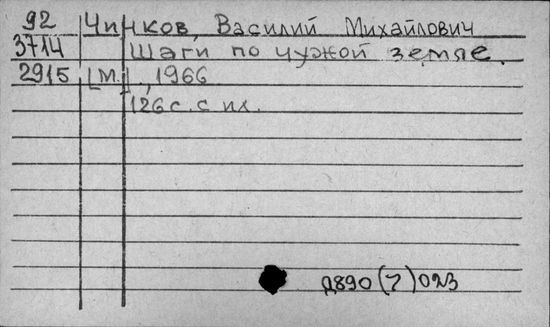 92 Чинков, Василий Михайлович
3714 Шаги по чужой земле.
2915 [М.], 1966
126 с. с ил.
Д890(7)023